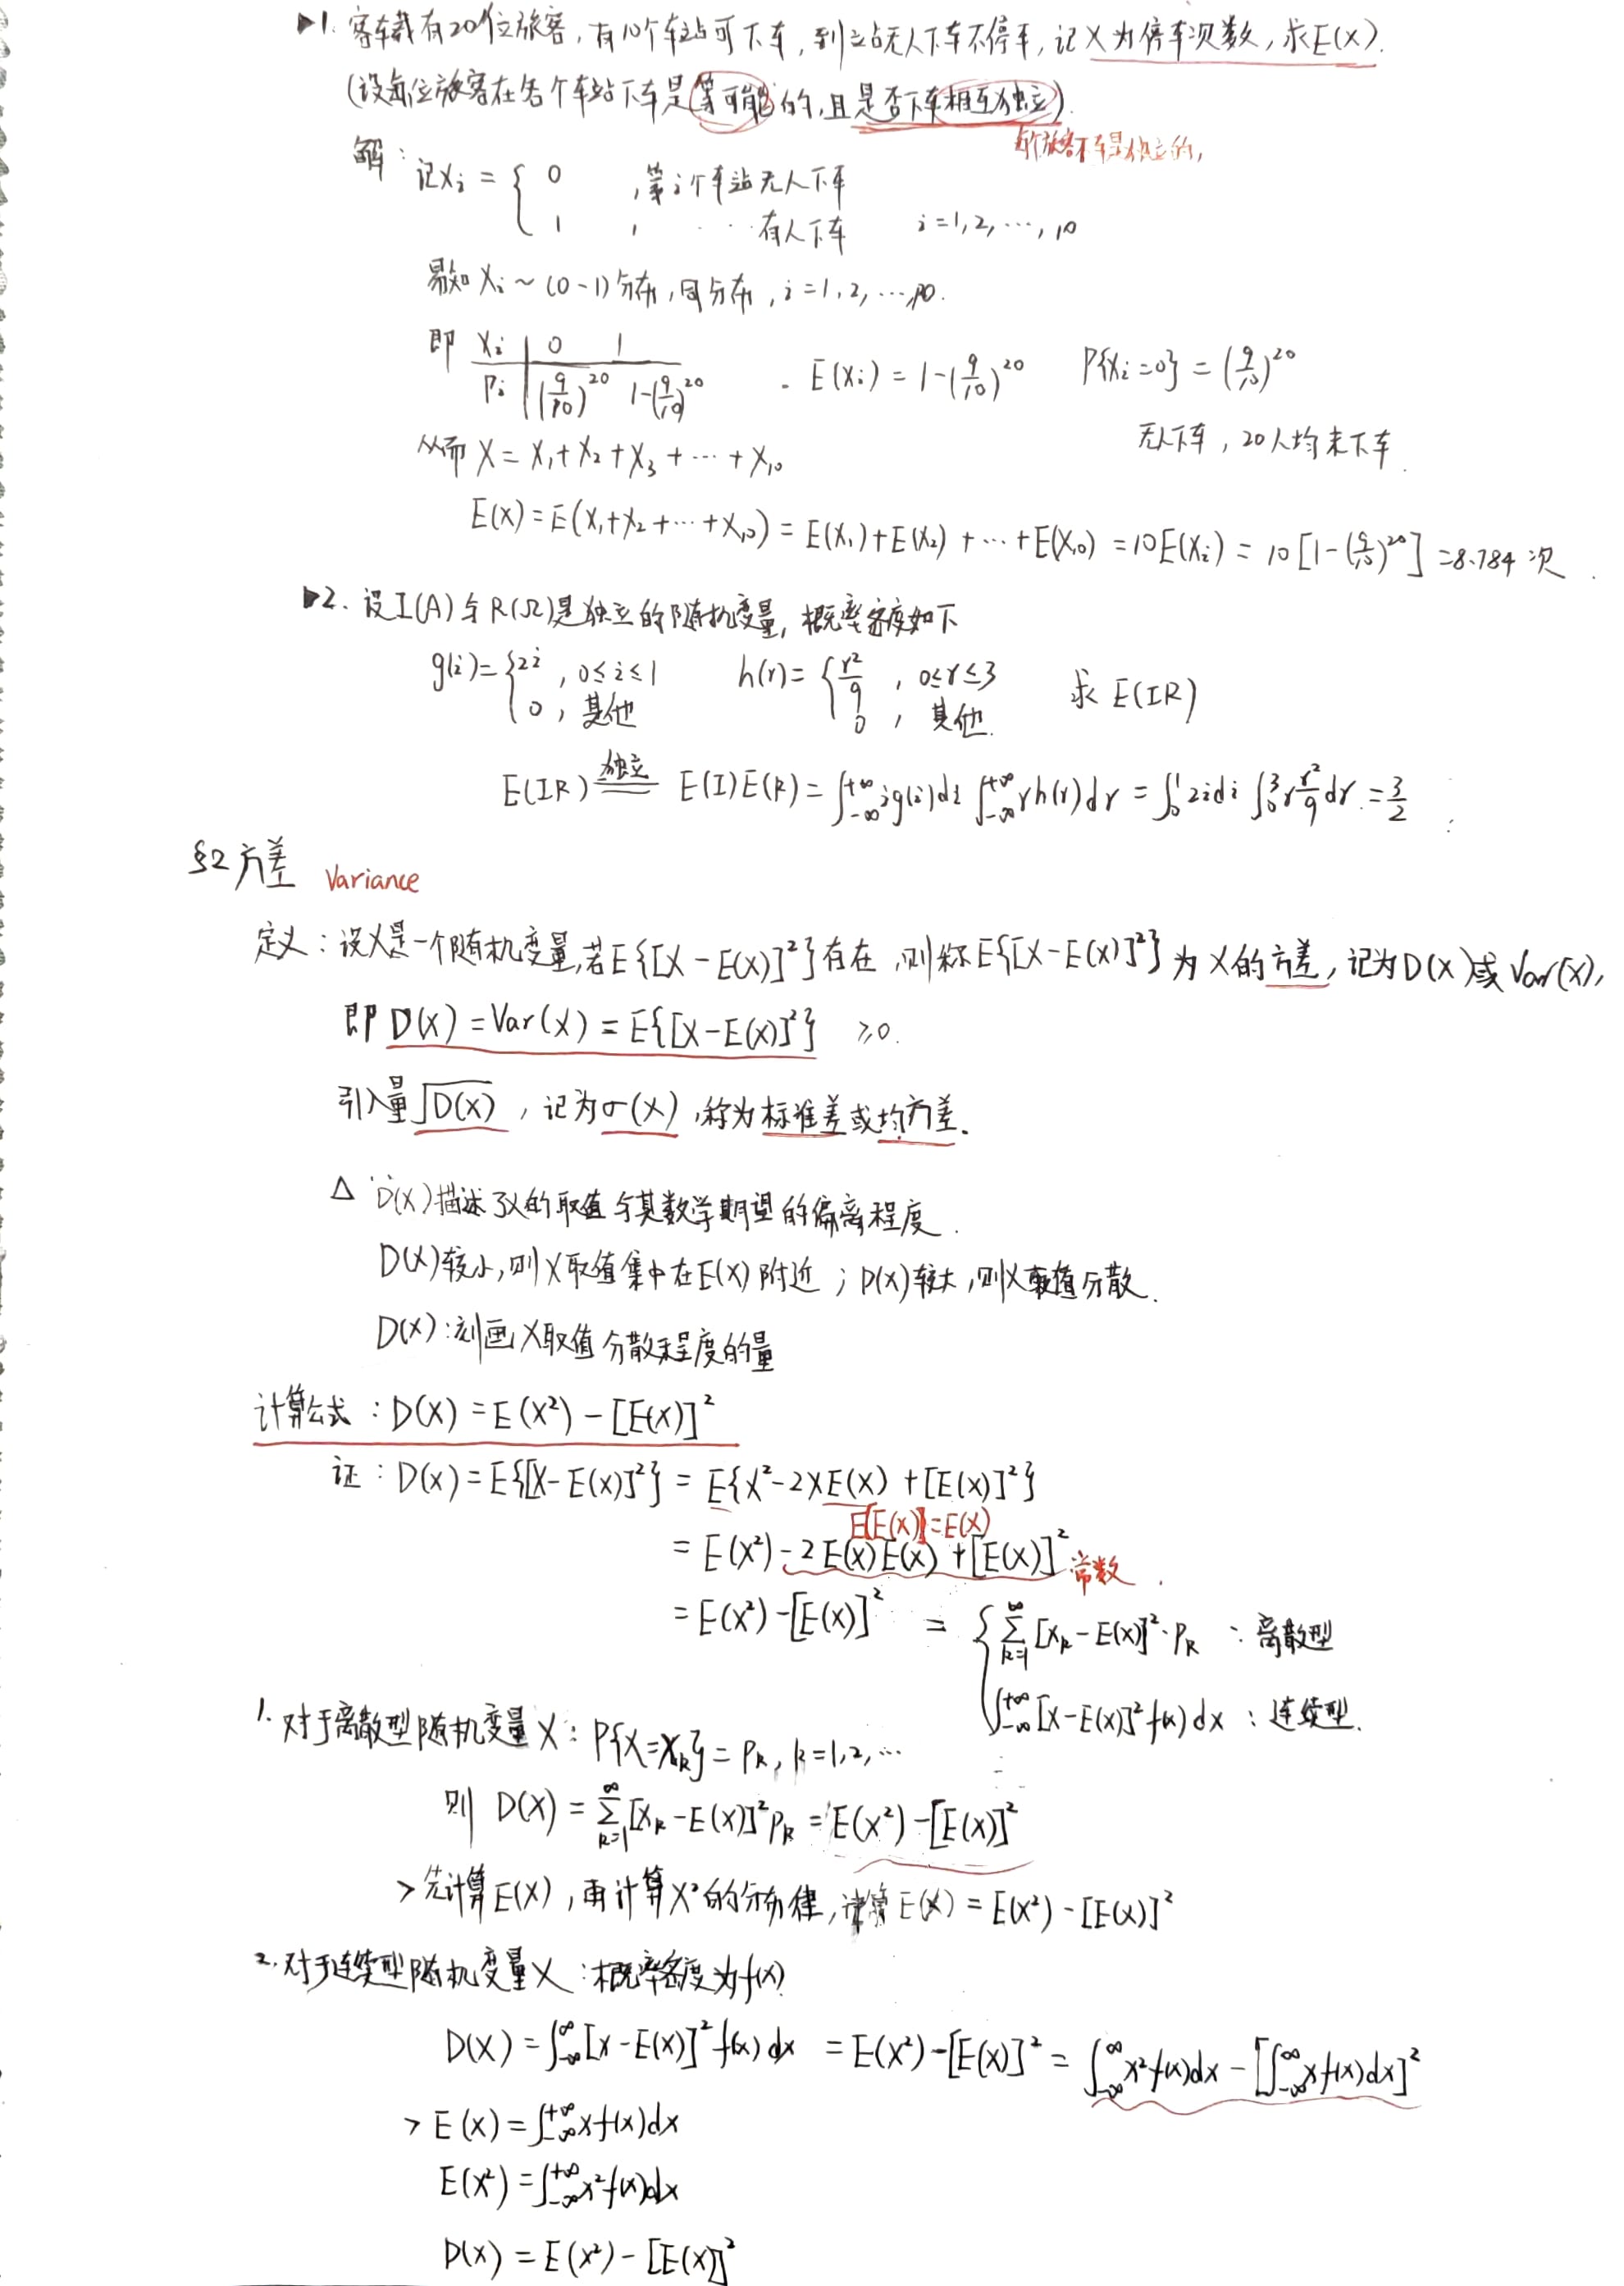 ▶1. 客车载有20位旅客,有10个车站可下车,到站无人下车不停车,记X为停车次数,求E(X).
(设每位旅客在各个车站下车是等可能的,且是否下车相互独立).
每个旅客下车是独立的,
解: 记Xi = { 0 , 第i个车站无人下车
1 , ··· 有人下车 i=1,2,…,10
易知 Xi ~ (0-1)分布,同分布, i=1,2,…,10.
即 Xi | 0 1
Pi | (9/10)^20 1-(9/10)^20 . E(Xi) = 1-(9/10)^20 P{Xi=0} = (9/10)^20
无人下车, 20人均未下车.
从而 X = X1+X2+X3+…+X10
E(X) = E(X1+X2+…+X10) = E(X1)+E(X2)+…+E(X10) = 10E(Xi) = 10[1-(9/10)^20] = 8.784 次.
▶2. 设I(A)与R(Ω)是独立的随机变量, 概率密度如下
g(i) = { 2i , 0≤i≤1 h(r) = { r²/9 , 0≤r≤3 求 E(IR)
0 , 其他 0 , 其他.
E(IR) =(独立)= E(I)E(R) = ∫_{-∞}^{+∞} i g(i)di ∫_{-∞}^{+∞} r h(r)dr = ∫_0^1 2i di ∫_0^3 r r²/9 dr. = 3/2
§2 方差 Variance
定义: 设X是一个随机变量,若E{[X-E(X)]²}存在,则称E{[X-E(X)]²}为X的方差,记为D(X)或Var(X),
即 D(X) = Var(X) = E{[X-E(X)]²} ≥0.
引入量√D(X) , 记为σ(X) ,称为标准差或均方差.
△ D(X)描述了X的取值与其数学期望的偏离程度.
D(X)较小,则X取值集中在E(X)附近; D(X)较大,则X取值分散.
D(X):刻画X取值分散程度的量
计算公式: D(X) = E(X²) - [E(X)]²
证: D(X) = E{[X-E(X)]²} = E{X²-2XE(X)+[E(X)]²}
E[E(X)]=E(X)
= E(X²) - 2E(X)E(X) + [E(X)]² 常数
= E(X²) - [E(X)]² = { ∑_{k=1}^{∞} [xk-E(X)]²·Pk : 离散型
∫_{-∞}^{+∞} [x-E(X)]² f(x)dx : 连续型.
1. 对于离散型随机变量X: P{X=xk} = Pk, k=1,2,…
则 D(X) = ∑_{k=1}^{∞} [xk-E(X)]² Pk = E(X²) - [E(X)]²
> 先计算E(X), 再计算X²的分布律, 计算 E(X) = E(X²) - [E(X)]²
2. 对于连续型随机变量X: 概率密度为f(x)
D(X) = ∫_{-∞}^{∞} [x-E(X)]² f(x)dx = E(X²) - [E(X)]² = ∫_{-∞}^{∞} x²f(x)dx - [∫_{-∞}^{∞} xf(x)dx]²
> E(X) = ∫_{-∞}^{+∞} xf(x)dx
E(X²) = ∫_{-∞}^{+∞} x²f(x)dx
D(X) = E(X²) - [E(X)]²